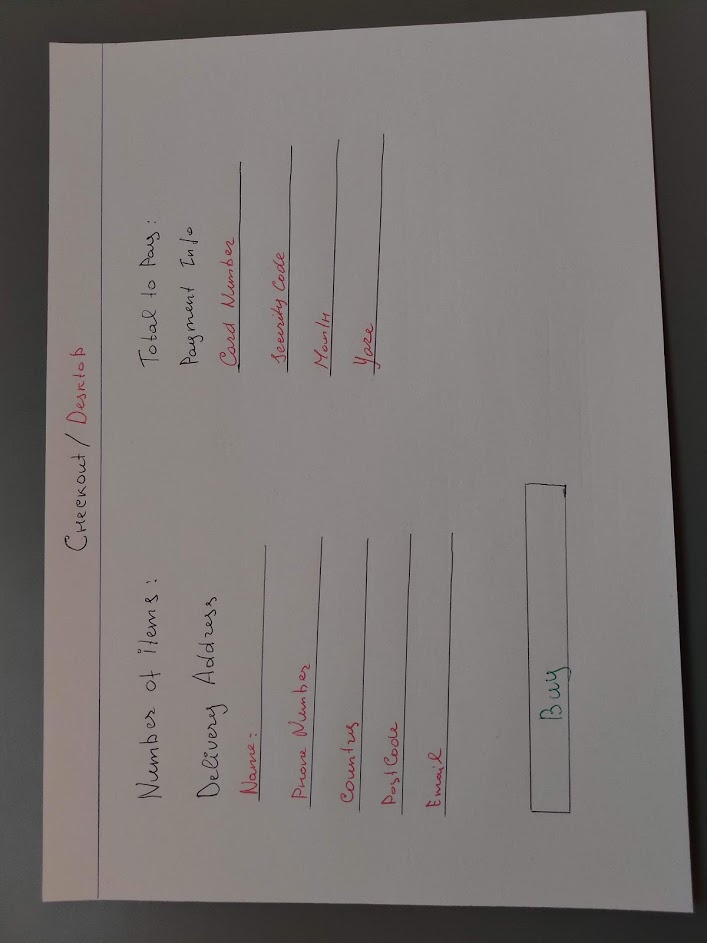 Checkout / Desktop
Number of items:
Delivery Address
Name:
Phone Number
Country
PostCode
Email
Buy
Total to Pay:
Payment Info
Card Number
Security Code
Month
Yare